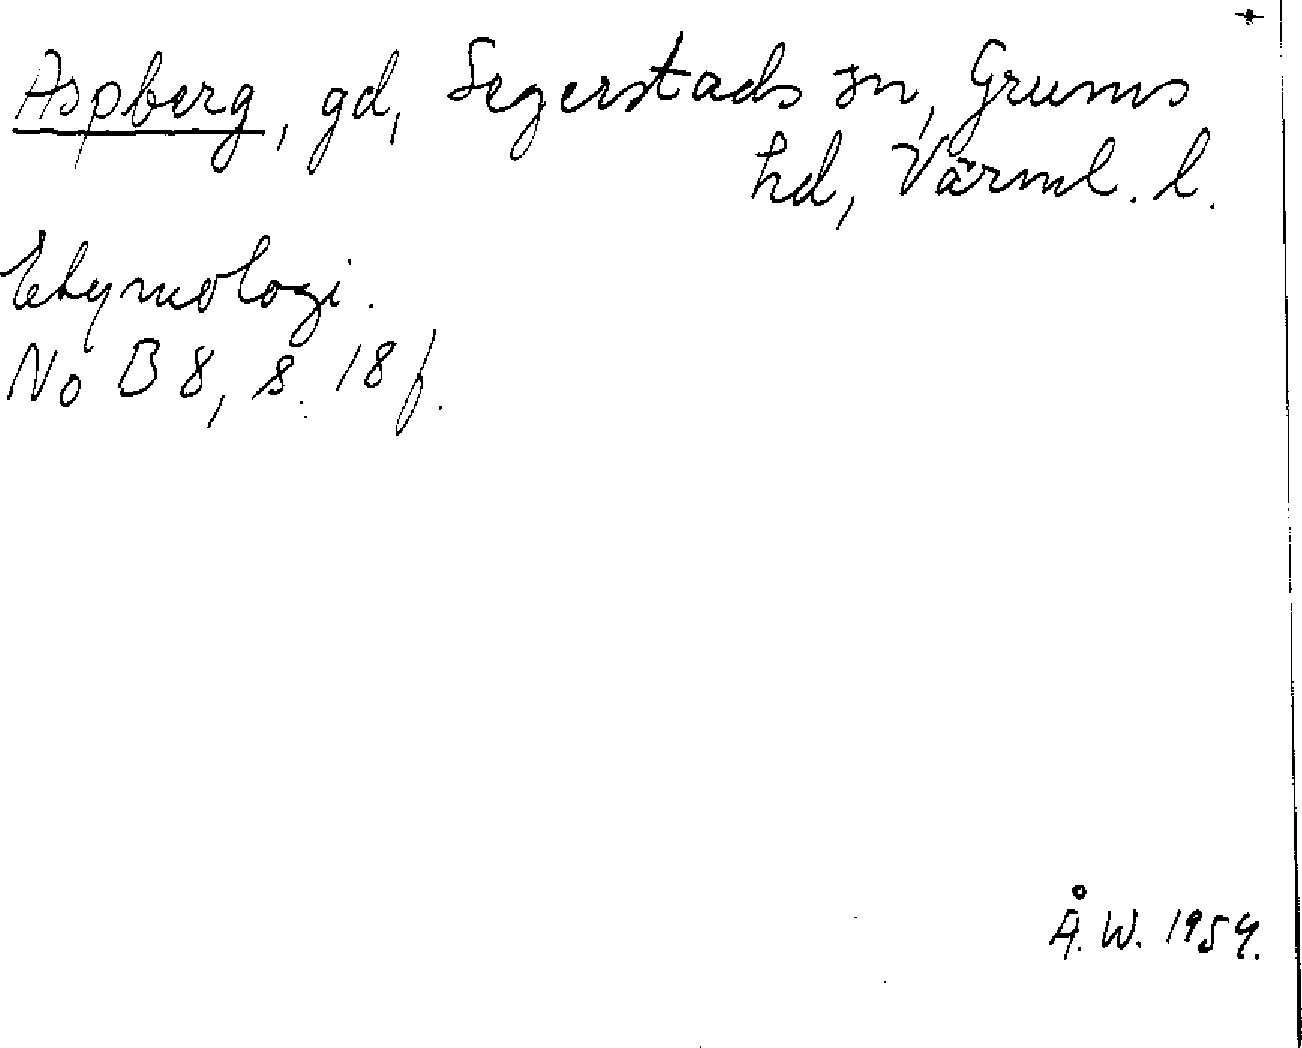 Aspberg, gd, Segerstads sn, Grums
hd, Värml. l.
Etymologi.
No B 8, s. 18 f.
Å. W. 1954.